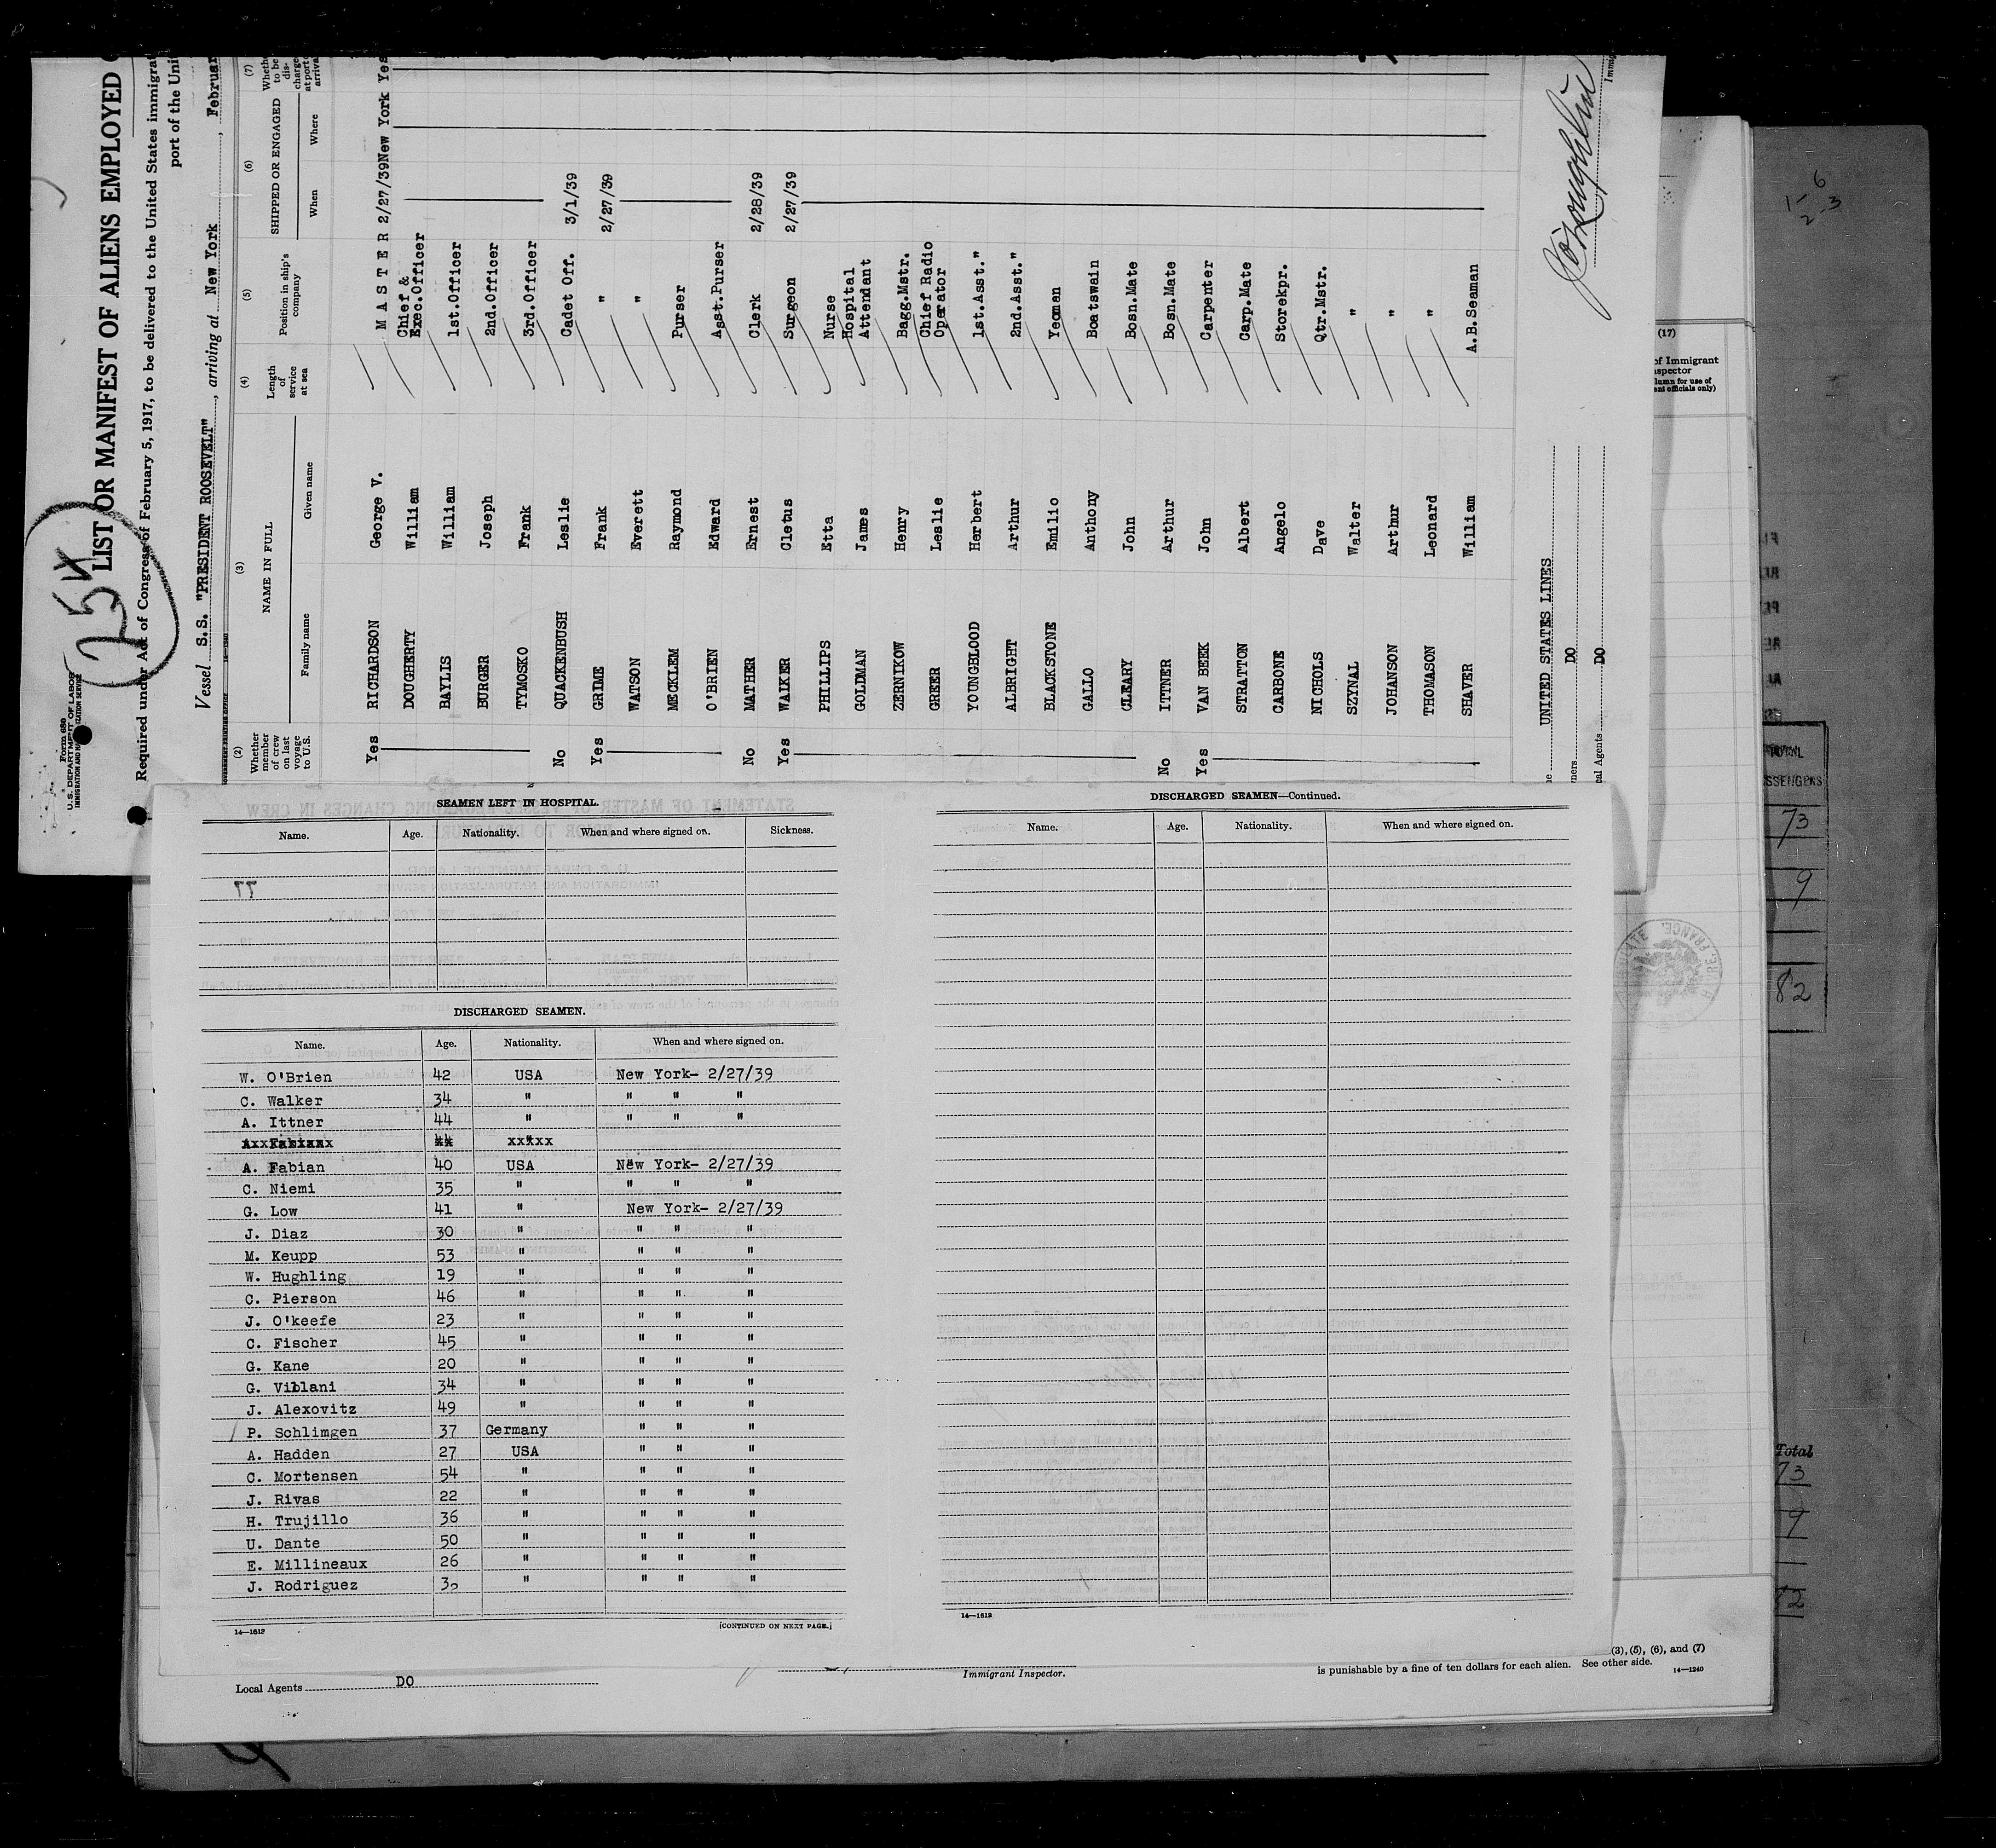 Form 680
U. S. DEPARTMENT OF LABOR
IMMIGRATION AND NATURALIZATION SERVICE
254
LIST OR MANIFEST OF ALIENS EMPLOYED
Required under Act of Congress of February 5, 1917, to be delivered to the United States immigrat
port of the Unit
Vessel S.S. "PRESIDENT ROOSEVELT", arriving at New York, Februar
(2) (3) (4) (5) (6) (7)
Whether member of crew on last voyage to U.S. NAME IN FULL Length of service at sea Position in ship's company SHIPPED OR ENGAGED Whethe to be dis- charge at port arriva
Family name Given name When Where
Yes RICHARDSON George V. MASTER 2/27/39 New York Yes
DOUGHERTY William Chief & Exec.Officer
BAYLIS William 1st.Officer
BURGER Joseph 2nd.Officer
TYMOSKO Frank 3rd.Officer
No QUACKENBUSH Leslie Cadet Off. 3/1/39
Yes GRIME Frank " 2/27/39
WATSON Everett "
MECKLEM Raymond Purser
O'BRIEN Edward Asst.Purser
No MATHER Ernest Clerk 2/28/39
Yes WALKER Cletus Surgeon 2/27/39
PHILLIPS Etta Nurse
GOLDMAN James Hospital Attendant
ZERNIKOW Henry Bagg.Mstr.
GREER Leslie Chief Radio Operator
YOUNGBLOOD Herbert 1st.Asst."
ALBRIGHT Arthur 2nd.Asst."
BLACKSTONE Emilio Yeoman
GALLO Anthony Boatswain
CLEARY John Bosn.Mate
No ITTNER Arthur Bosn.Mate
Yes VAN BEEK John Carpenter
STRATTON Albert Carp.Mate
CARBONE Angelo Storekpr.
NICHOLS Dave Qtr.Mstr.
SZYNAL Walter "
JOHANSON Arthur "
THOMASON Leonard "
SHAVER William A.B.Seaman
UNITED STATES LINES
DO
cal Agents DO
(17)
of Immigrant
spector
lumn for use of
ent officials only)
SEAMEN LEFT IN HOSPITAL.
Name. Age. Nationality. When and where signed on. Sickness.
DISCHARGED SEAMEN.
Name. Age. Nationality. When and where signed on.
W. O'Brien 42 USA New York- 2/27/39
C. Walker 34 " " " "
A. Ittner 44 " " " "
A. Fabian 40 USA New York- 2/27/39
C. Niemi 35 " " " "
G. Low 41 " New York- 2/27/39
J. Diaz 30 " " " "
M. Keupp 53 " " " "
W. Hughling 19 " " " "
C. Pierson 46 " " " "
J. O'keefe 23 " " " "
C. Fischer 45 " " " "
G. Kane 20 " " " "
G. Viblani 34 " " " "
J. Alexovitz 49 " " " "
P. Schlimgen 37 Germany " " "
A. Hadden 27 USA " " "
C. Mortensen 54 " " " "
J. Rivas 22 " " " "
H. Trujillo 36 " " " "
U. Dante 50 " " " "
E. Millineaux 26 " " " "
J. Rodriguez 30 " " " "
14—1612
[CONTINUED ON NEXT PAGE.]
DISCHARGED SEAMEN—Continued.
Name. Age. Nationality. When and where signed on.
14—1612
Local Agents DO
Immigrant Inspector.
(3), (5), (6), and (7)
is punishable by a fine of ten dollars for each alien. See other side.
14—1240
73
9
82
Total
73
9
82